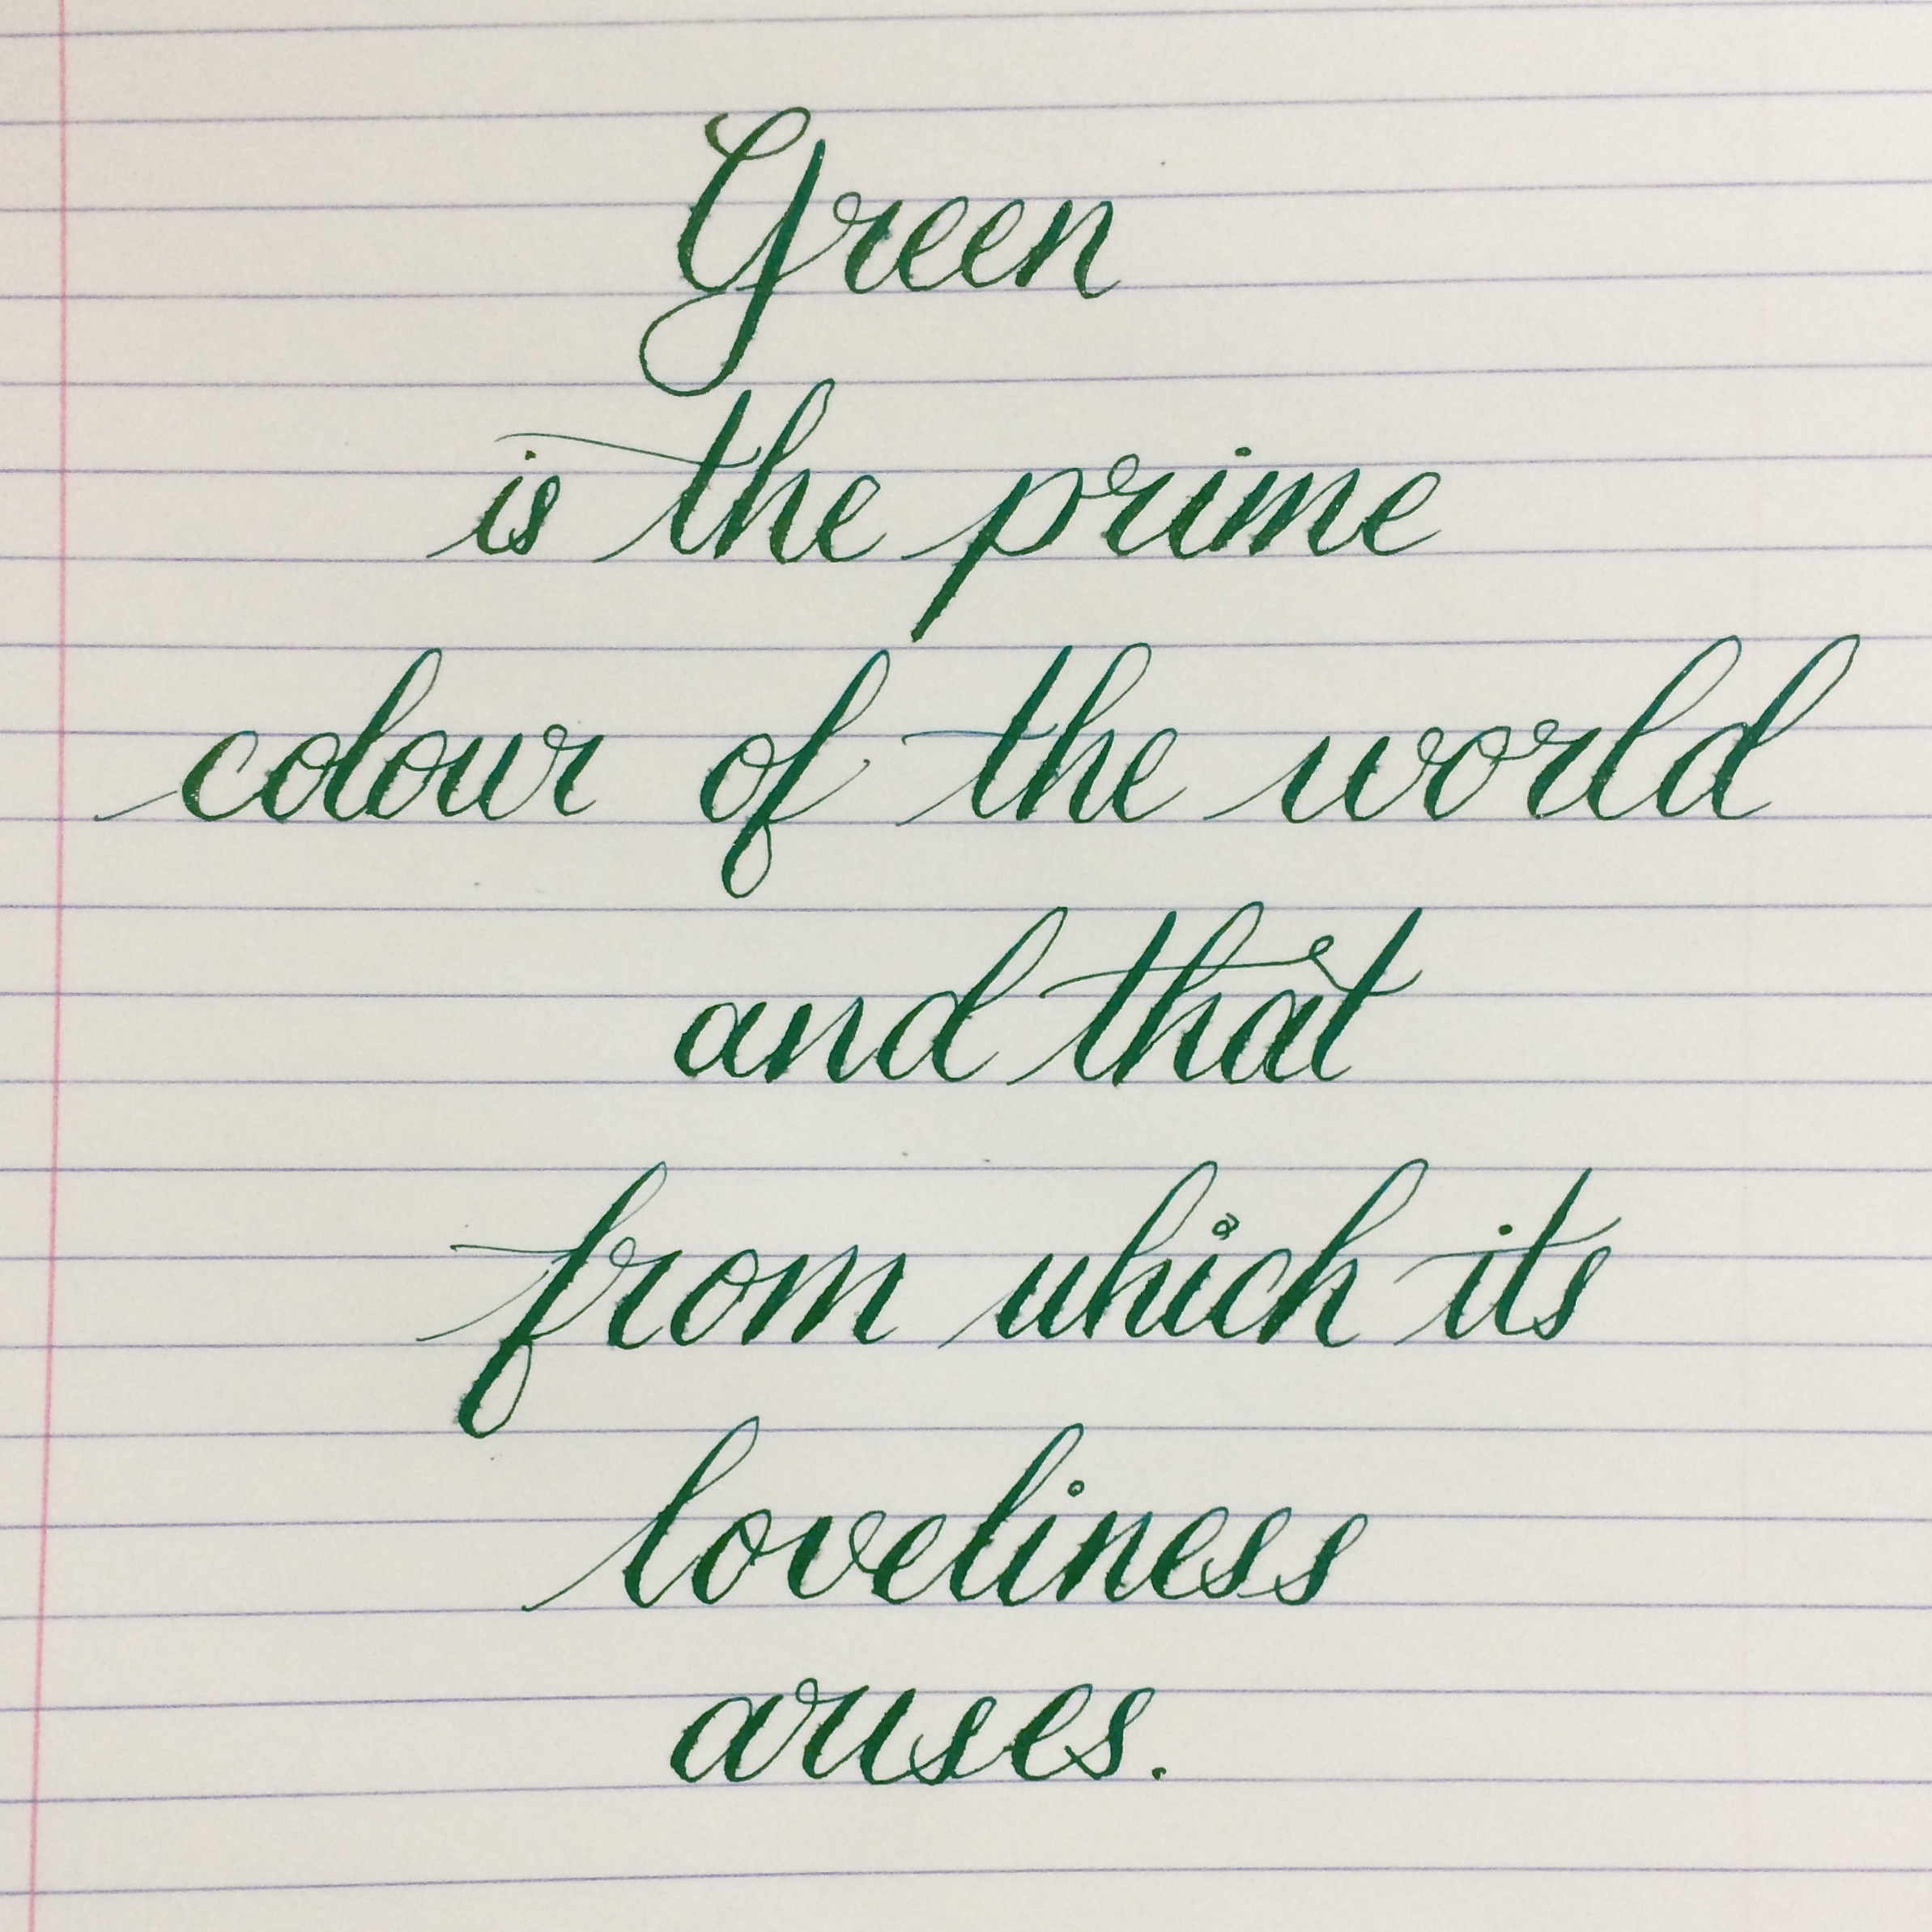 Green
is the prime
colour of the world
and that
from which its
loveliness
arises.